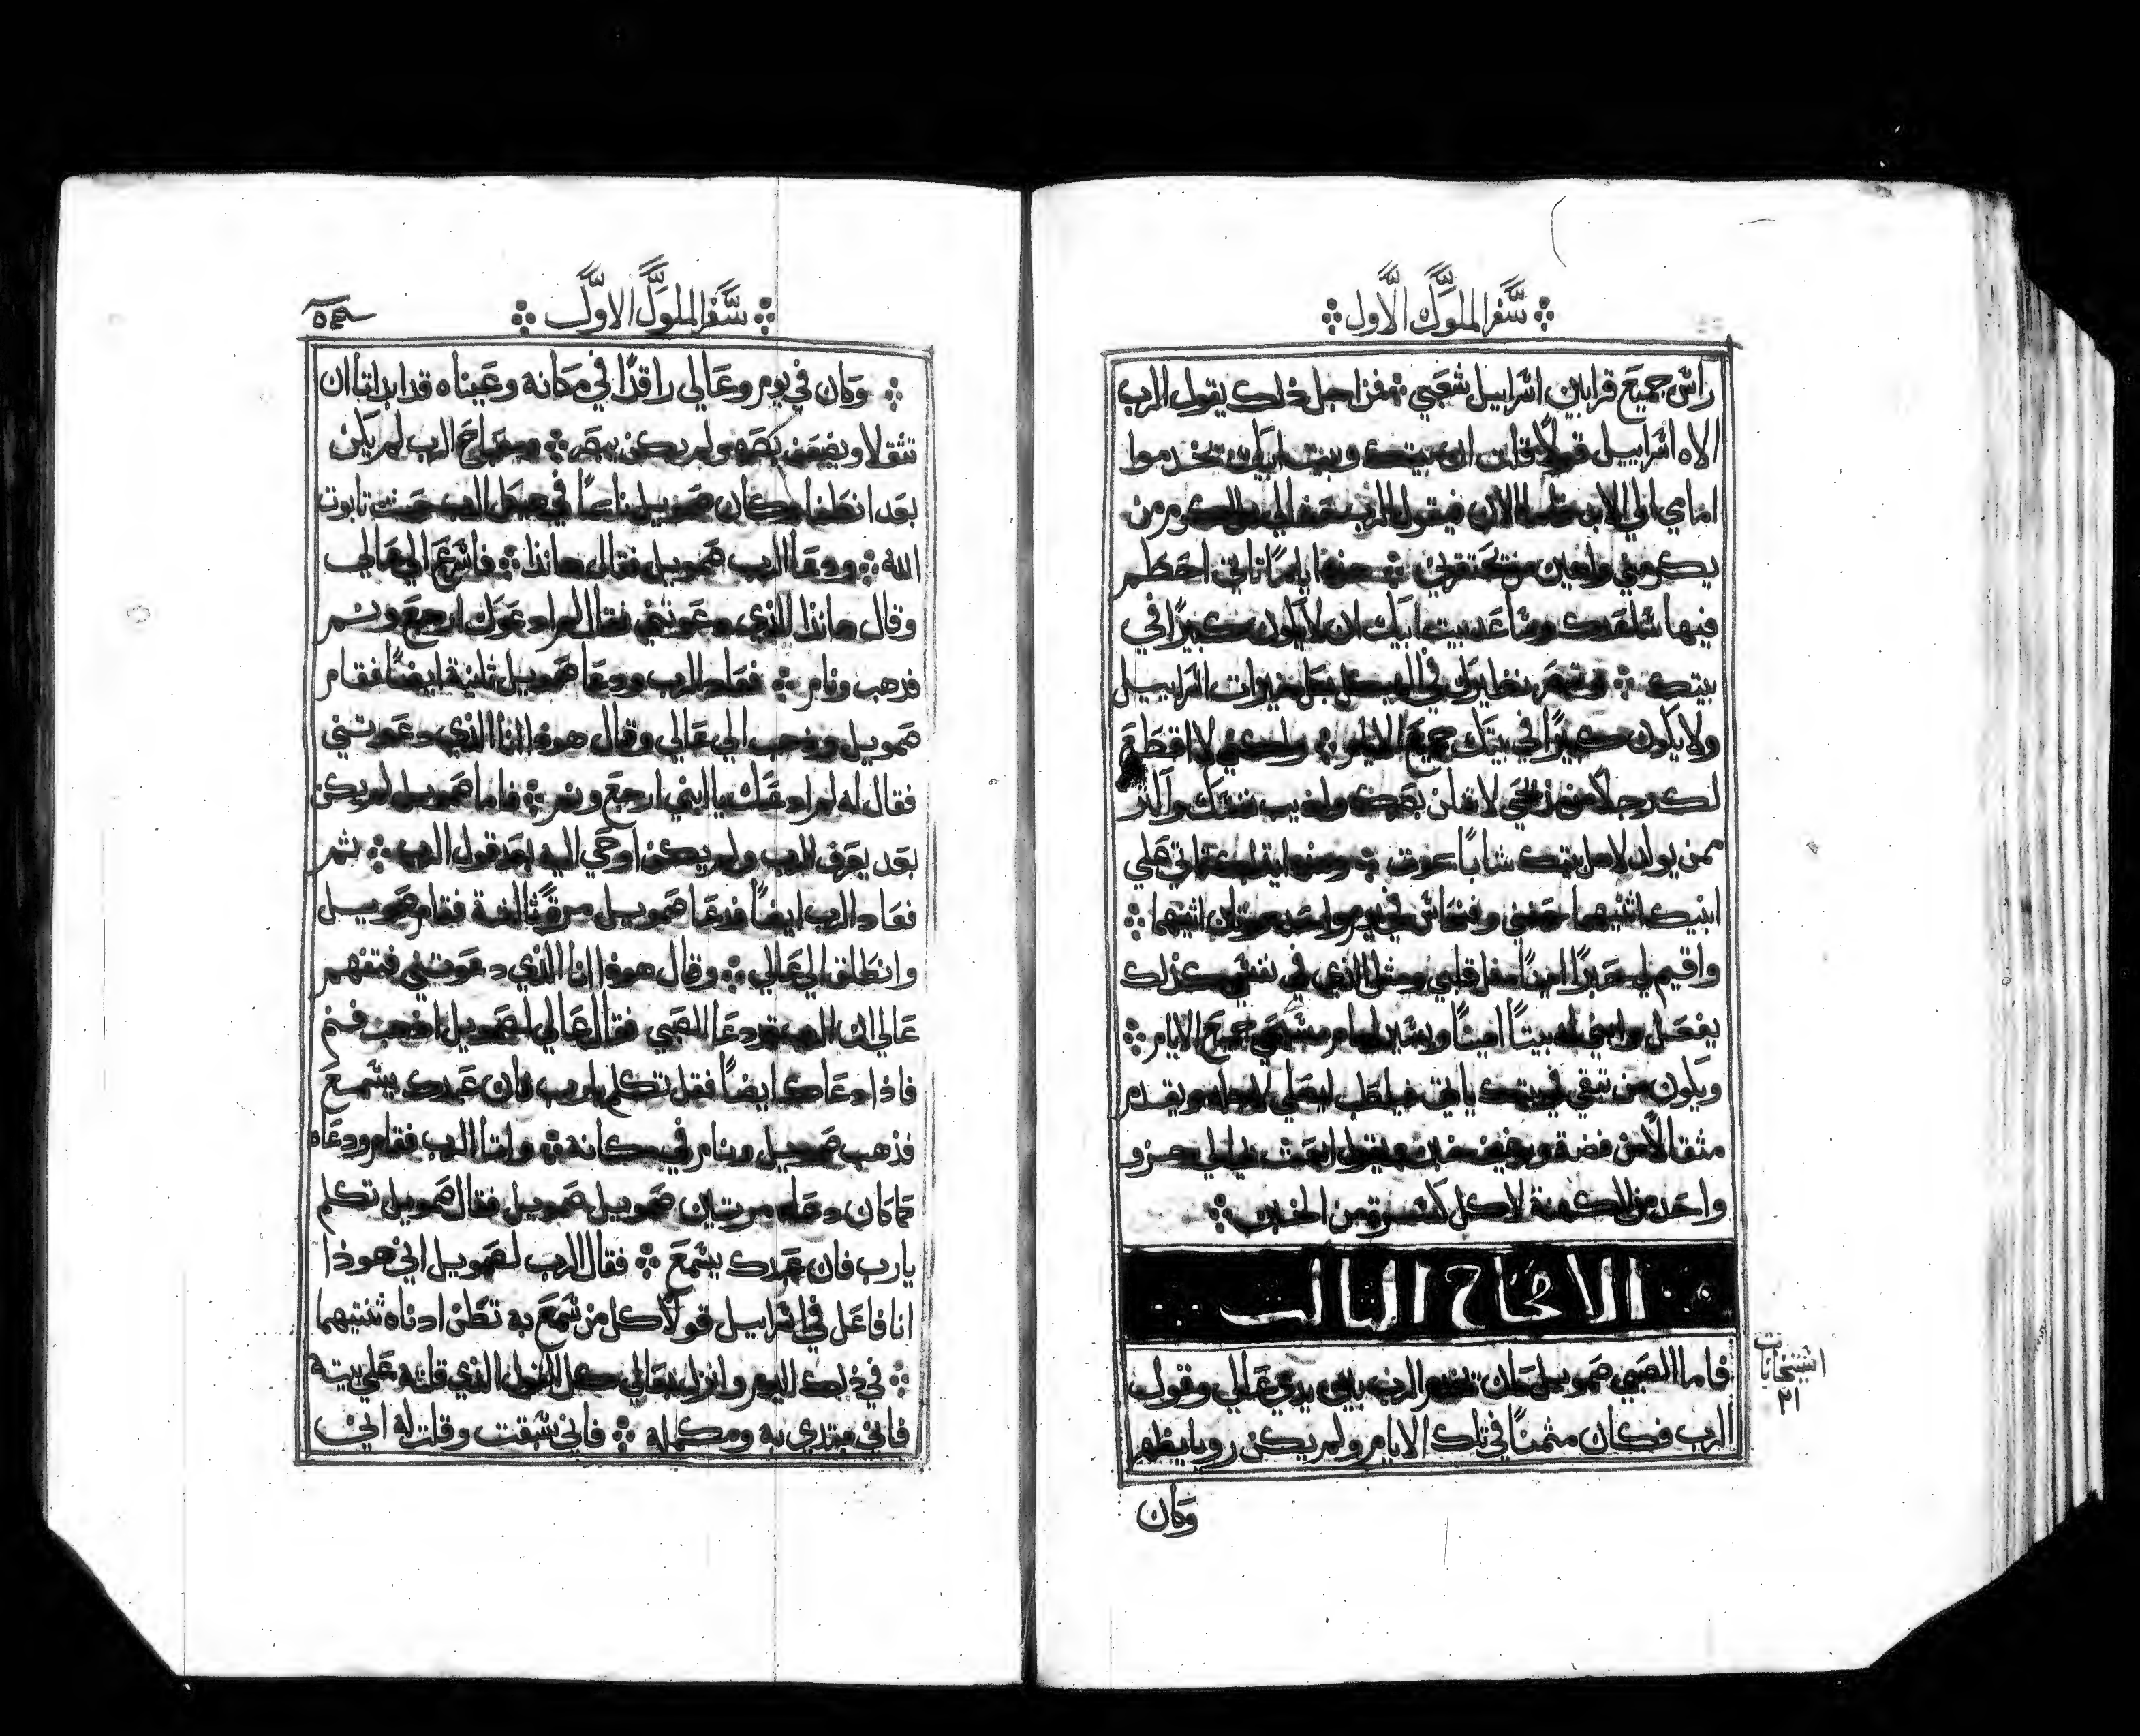 سفر الملوك الاول
راس جميع قرابين اسراييل شعبي فمن اجل ذلك يقول الرب
الاه اسراييل قولاً قلت ان بيتك وبيت ابيك يخدموا
امامي الي الابد الان فيقول الرب الي
يكرمني من يحتقرني اياماً تاتي احطم
فيها ساعدك وساعد بيت ابيك ان لا يكون كبيرًا في
بيتك في الهيكل بكل خيرات اسراييل
ولا يكون كبيرًا في بيتك جميع الايام ولكني لا اقطع
لك رجلاً من مذبحي لاكن بصرك واذيب نفسك واكثر
ممن يولد لاهل بيتك شاباً يموت علي
ابنيك اثنيهما حفني وفنحاس في يوم واحد يموتان اثنيهما
واقيم لي حبرًا امينًا مثل قلبي ومثل الذي في نفسي كذلك
يفعل وابني له بيتاً اميناً ويسير امام مسيحي جميع الايام
ويكون من تبقي في بيتك ياتي ليصلي لاجله ويقدم
مثقالاً من فضة ورغيف خبز ويقول ابعث بي الي جزو
واحد من الكهنة لاكل كسرة من الخبز
الاصحاح الثالث
فاما الصبي صمويل كان يخدم الرب بين يدي عالي وقول
الرب فكان مثمناً في تلك الايام ولم يكن رويا يظهر
اشتخانات
٢١
وكان
سفر الملوك الاول
وكان في يوم وعالي راقدًا في مكانه وعيناه قد ابداتا ان
تثقلا ويضعف بصره ولم يكن يبصر ومصباح الرب لم يكن
بعد انطفا وكان صمويل نائماً في هيكل الرب حيث تابوت
الله ودعا الرب صمويل فقال هانذا فاسرع الي عالي
وقال هانذا الذي دعوتني فقال لم ادعوك ارجع ونم
فذهب ونام فعاد الرب ودعا صمويل ثانية ايضاً فقام
صمويل وذهب الي عالي وقال هوذا انا الذي دعوتني
فقال له لم ادعك يا ابني ارجع ونم فاما صمويل لم يكن
بعد يعرف الرب ولم يكن اوحي اليه بعد قول الرب ثم
فعاد الرب ايضاً فدعا صمويل مرة ثالثة فقام صمويل
وانطلق الي عالي وقال هوذا انا الذي دعوتني فتفهم
عالي ان الرب دعا الصبي فقال عالي لصمويل اذهب فنم
فاذا دعاك ايضاً فقل تكلم يا رب فان عبدك يسمع
فذهب صمويل ونام في مكانه واتا الرب فقام ودعاه
كما كان دعاه مرتين صمويل صمويل فقال صمويل تكلم
يا رب فان عبدك يسمع فقال الرب لصمويل اني هوذا
انا فاعل في اسراييل قولاً كل من سمع به تطن ادناه ثنتيهما
في ذلك اليوم وانزل بعالي كل القول الذي قلته علي بيته
فاني مبتدي به ومكمله فاني سبقت وقلت له اني